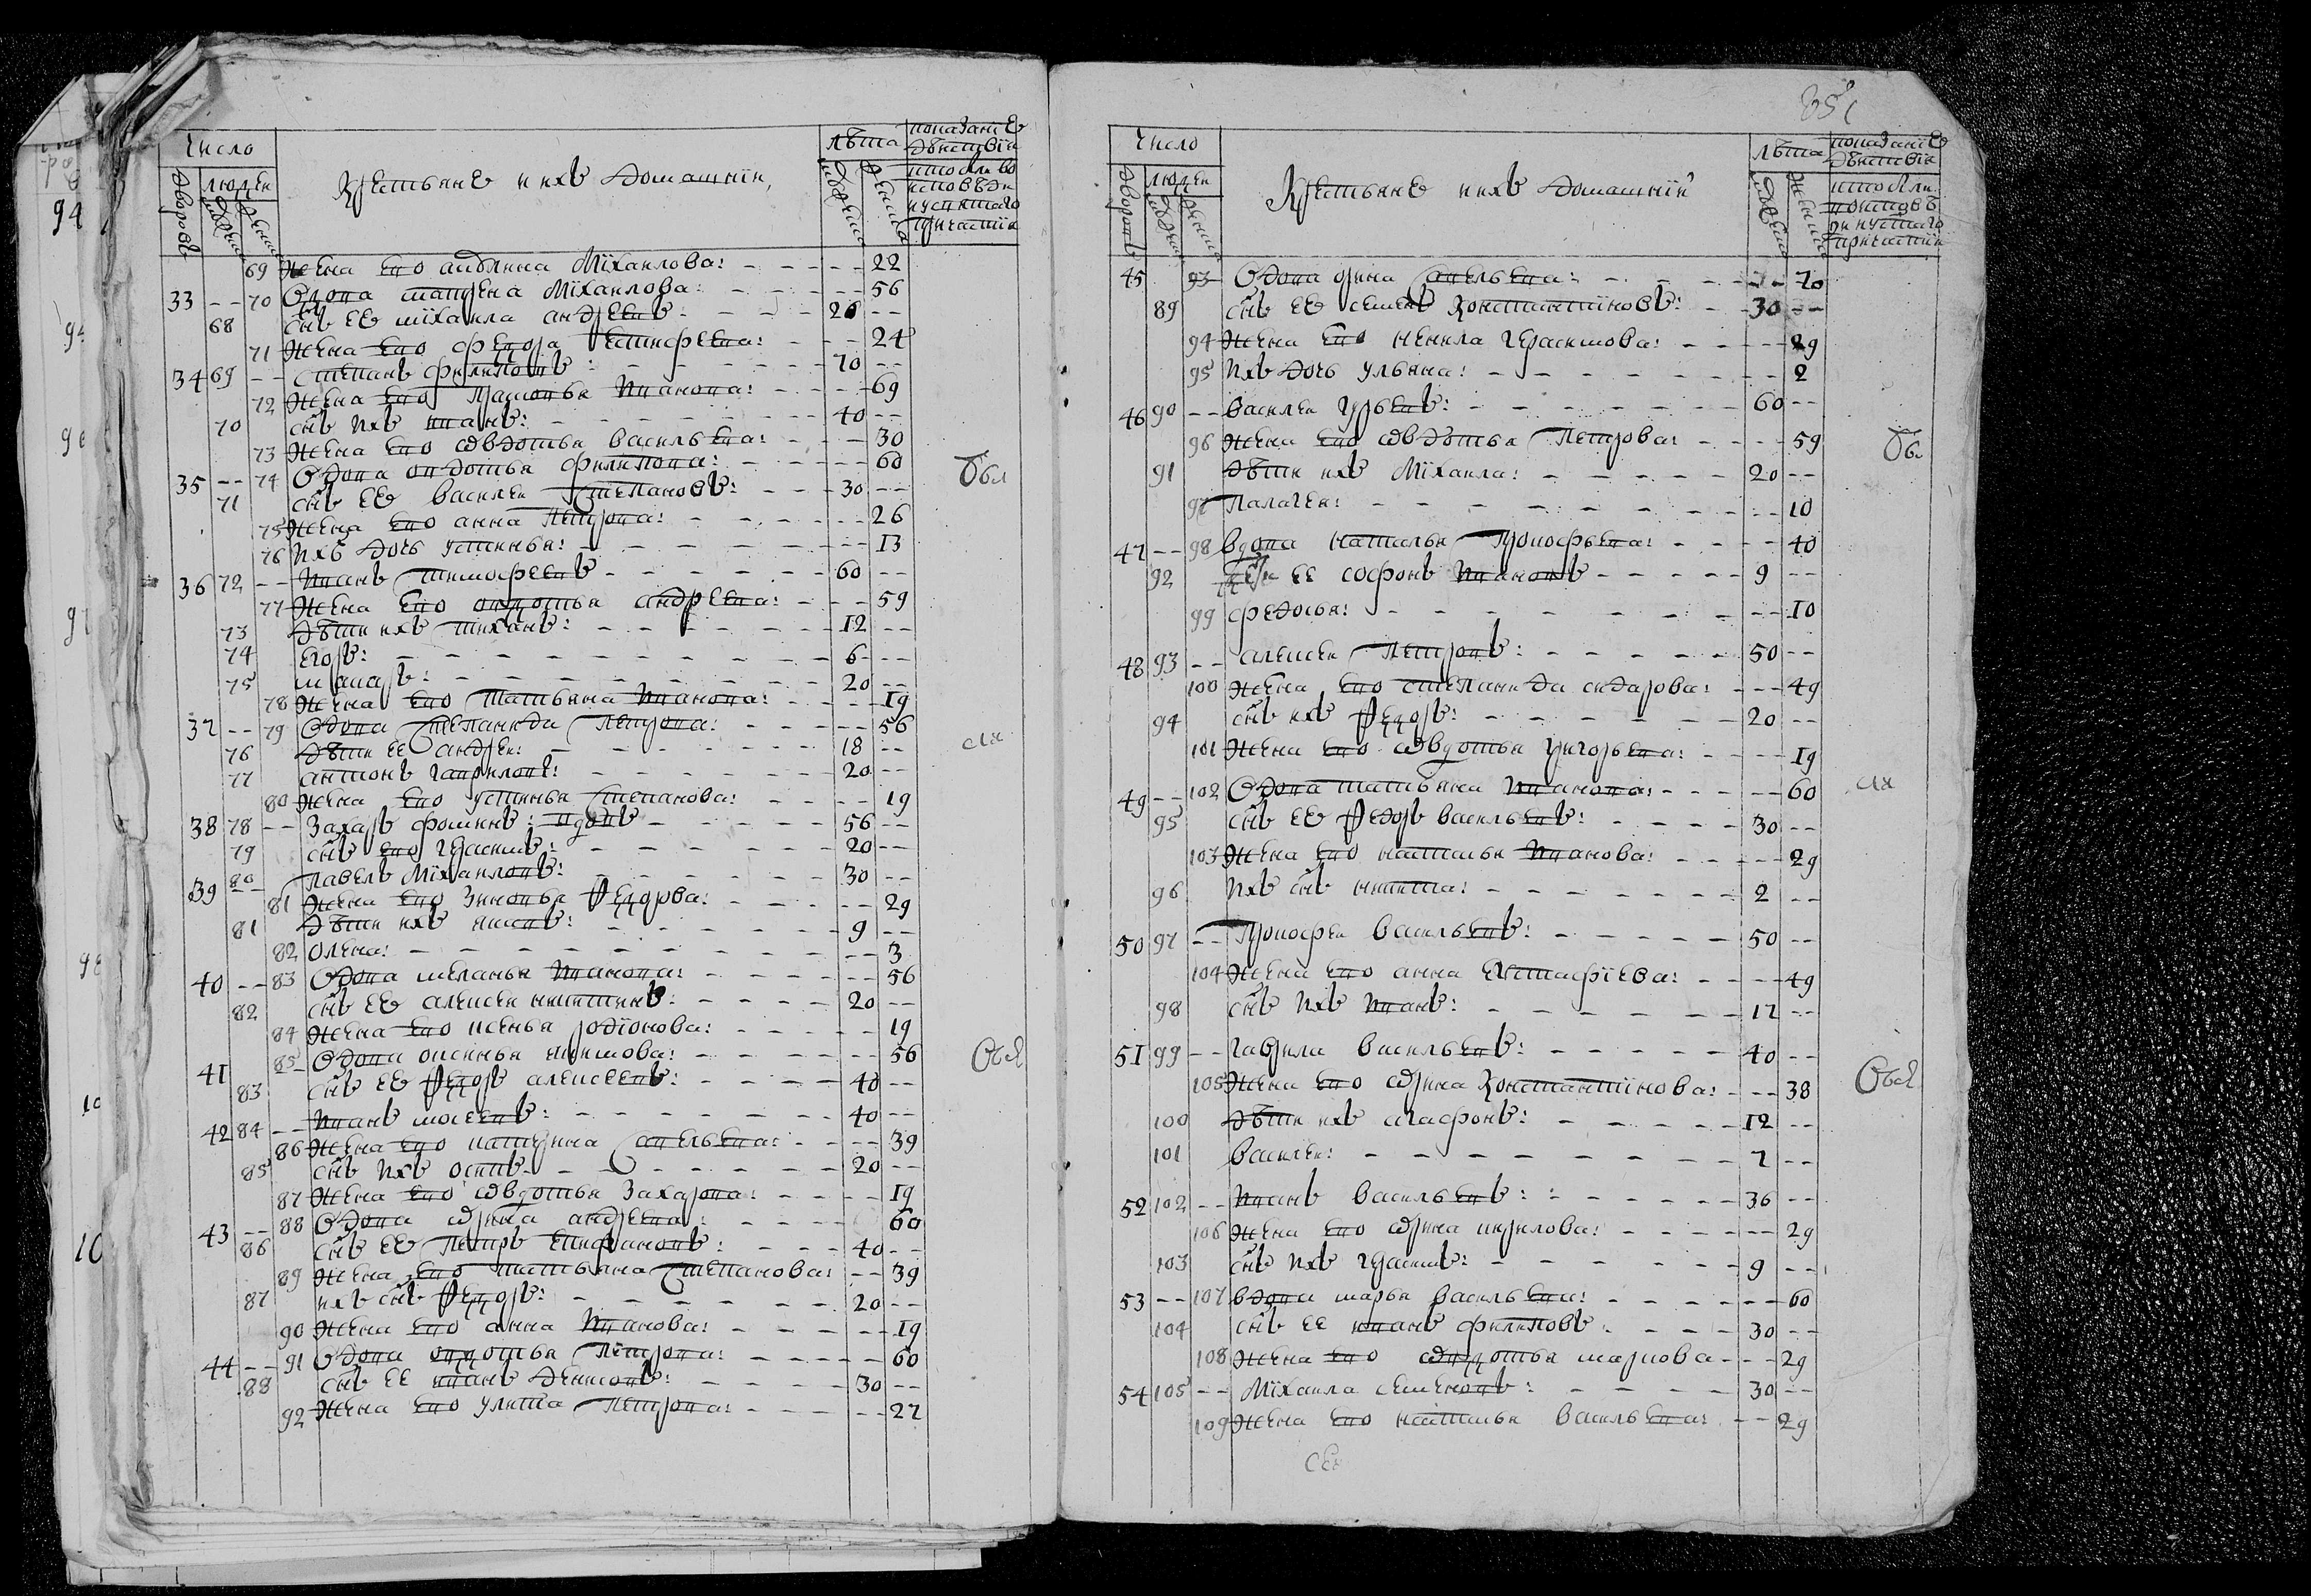 Число
дворовъ
людей
мужеска
женска
Крестьяне и ихъ домашнїи
лѣта
мужеска
женска
показанїе дѣйствїя кто былъ во исповѣди и у святаго причастїя
69 Жена ево Михаилова: 22
33 -- 70 Вдова Михаилова: 56
68 сн҃ъ ее михаила андреевъ: 26 --
71 Жена ево федора: 24
34 69 -- степанъ филиповъ: 70 --
72 Жена ево Прасковья Иванова: 69
70 сн҃ъ ихъ иванъ: 40 --
73 Жена ево ѡвдотья васильева: 30
35 -- 74 Вдова овдотья филипова: 60
71 сн҃ъ ее василеи Степановъ: 30 --
75 Жена ево анна Петрова: 26
76 ихъ дочь устинья: 13
36 72 -- Иванъ тимофеевъ 60 --
77 Жена ево овдотья андреева: 59
73 дѣти ихъ тиханъ: 12 --
74 егоръ: 6 --
75 макаръ: 20 --
78 Жена ево Татьяна Иванова: 19
37 -- 79 Вдова Степанида Петрова: 56
76 дѣти ее андреи: 18 --
77 антонъ гавриловъ: 20 --
80 Жена ево устинья Степанова: 19
38 78 -- Захаръ фоминъ: вдовъ 56 --
79 сн҃ъ ево герасимъ: 20 --
39 80 -- Павелъ Михаиловъ: 30 --
81 Жена ево Зиновья Федорва: 29
81 дѣти ихъ яковъ: 9 --
82 олена: 3
40 -- 83 Вдова меланья Иванова: 56
82 сн҃ъ ее алексеи никитинъ: 20 --
84 Жена ево ксенья родїонова: 19
41 85 Вдова оксинья якимова: 56
83 сн҃ъ ее Федоръ алексеевъ: 40 --
42 84 -- Иванъ мосеевъ: 40 --
86 Жена ево катерина Савельева: 39
85 сн҃ъ ихъ осипъ 20 --
87 Жена ево ѡвдотья Захарова: 19
43 -- 88 Вдова ѡрина андреева: 60
86 сн҃ъ ее Петръ епифановъ: 40 --
89 Жена ево татьяна Степанова: -- 39
87 ихъ сн҃ъ Федоръ: 20 --
90 Жена ево анна Иванова: 19
44 -- 91 Вдова овдотья Петрова: 60
88 сн҃ъ ее иванъ денисовъ: 30 --
92 Жена ево улита Петрова: 27
Были
ся
Всѣ
Число
дворовъ
людеи
мужеска
женска
Крестьяне и ихъ домашнїи
лѣта
мужеска
женска
показанїе дѣйствїя
45 93 Вдова орина Савельева: 70
89 сн҃ъ ее семенъ Константїновъ: 30 --
94 Жена ево ненила герасимова: 29
95 ихъ дочь ульяна: 2
46 90 -- василеи гурьевъ: 60 --
96 Жена ево ѡвдотья Петрова: 59
91 дѣти ихъ Михаила: 20 --
97 Палагеи: 10
47 -- 98 вдова наталья Прокофьева: 40
92 дѣти ее софонъ Ивановъ 9 --
99 федосья: 10
48 93 -- алексеи Петровъ: 50 --
100 Жена ево степанида сидарова: 49
94 сн҃ъ ихъ Федоръ: 20 --
101 Жена ево ѡвдотья григорьева: 19
49 -- 102 Вдова татьяна Иванова: 60
95 сн҃ъ ее Федоръ васильевъ: 30 --
103 Жена ево наталья Иванова: 29
96 ихъ сн҃ъ никита: 2 --
50 97 -- Прокофеи васильевъ: 50 --
104 Жена ево анна Евстафїева: 49
98 сн҃ъ ихъ Иванъ: 17 --
51 99 -- гаврила васильевъ: 40 --
105 Жена ево ѡрина Константїнова: 38
100 дѣти ихъ агафонъ: 12 --
101 василеи: 7 --
52 102 -- Иванъ васильевъ: 36 --
106 Жена ево ѡрина кирилова: 29
103 сн҃ъ ихъ герасимъ: 9 --
53 -- 107 вдова марья васильева: 60
104 сн҃ъ ее иванъ филиповъ: 30 --
108 Жена ево ѡвдотья маркова 29
54 105 -- Михаила семеновъ: 30 --
109 Жена ево наталья васильева: 29
Бы
ли
Всѣ